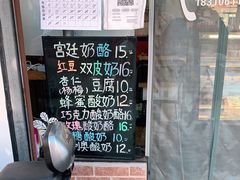 183106
宫廷奶酪 15.
红豆双皮奶 16.
杏仁豆腐 10.
(杨梅)
蜂蜜酸奶 12.
巧克力酸奶酪 16
玫瑰酸奶酪 16.
酸奶 10.
酸奶 12.